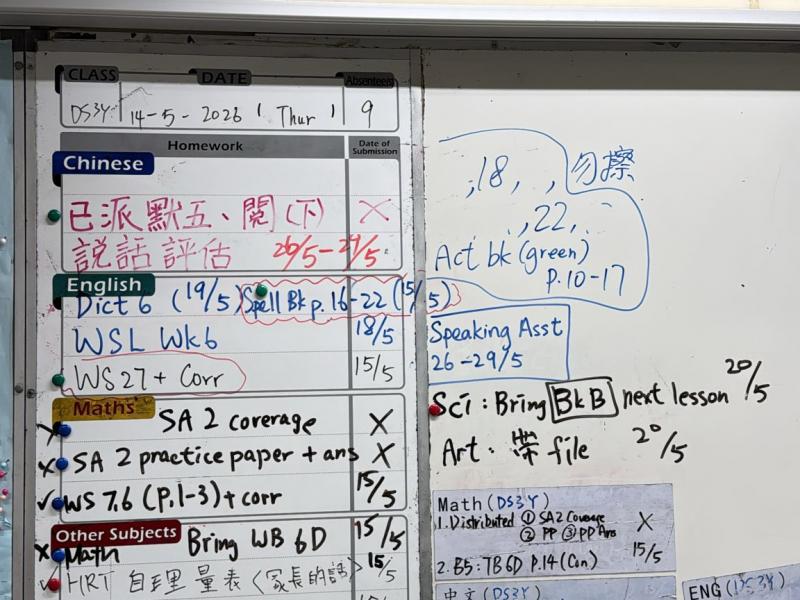 CLASS DATE Absentees
DS3Y 14-5-2026 Thur 9
Homework Date of Submission
Chinese
已派 默五、閱(下) X
説話評估 26/5-29/5
English
Dict 6 (19/5) Spell Bk p.16-22 (15/5)
WSL Wk6 18/5
WS27 + Corr 15/5
Maths
SA 2 coverage X
SA 2 practice paper + ans X
WS 7.6 (P.1-3) + corr 15/5
Other Subjects
Math Bring WB 6D 15/5
HRT 自理量表〈家長的話〉 15/5
,18, , 勿擦
,22,
Act bk (green)
p.10-17
Speaking Asst
26-29/5
Sci : Bring BkB next lesson 20/5
Art : 帶 file 20/5
Math (DS3Y)
1. Distributed ① SA2 Coverage X
② PP ③ PP Ans
2. B5: TB 6D P.14 (Con) 15/5
中文 (DS3Y)
ENG (DS3Y)